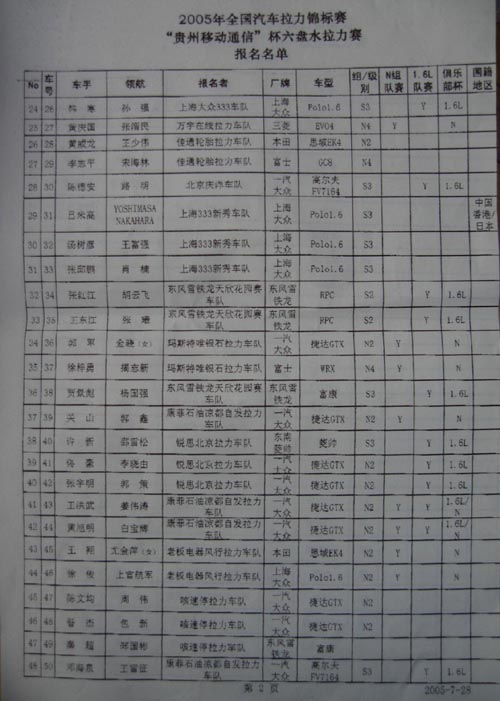 2005年全国汽车拉力锦标赛
“贵州移动通信”杯六盘水拉力赛
报名名单
序号 车号 车手 领航 报名者 厂牌 车型 组/级别 N组队赛 1.6L队赛 俱乐部杯 国籍地区
24 26 韩寒 孙强 上海大众333车队 上海大众 Polo1.6 S3 Y 1.6L
25 27 黄庆国 张海民 万宇在线拉力车队 三菱 EVO4 N4 Y N
26 28 黄威龙 王少伟 佳通轮胎拉力车队 本田 思域EK4 N2
27 29 李志平 宋海林 佳通轮胎拉力车队 富士 GC8 N4
28 30 陈德安 路明 一汽大众 高尔夫FV7164 S3 Y 1.6L
29 31 吕米高 YOSHIMASA NAKAHARA 上海333新秀车队 上海大众 Polo1.6 S3 中国香港/日本
30 32 王富强 上海333新秀车队 上海大众 Polo1.6 S3
31 33 上海333新秀车队 上海大众 Polo1.6 S3
32 34 张红江 胡云飞 东风雪铁龙天欣花园赛车队 东风雪铁龙 RPC S2 Y 1.6L
33 35 王东江 张曦 东风雪铁龙天欣花园赛车队 东风雪铁龙 RPC S2 Y 1.6L
34 36 金晓(女) 玛斯特唯银石拉力车队 一汽大众 捷达GTX N2 Y N
35 37 玛斯特唯银石拉力车队 富士 WRX N4 Y N
36 38 杨国强 东风雪铁龙天欣花园赛车队 东风雪铁龙 富康 S3 Y 1.6L
37 39 关山 郭鑫 康菲石油凉都自发拉力车队 一汽大众 捷达GTX N2 Y N
38 40 许新 邵雪松 锐思北京拉力车队 东南菱帅 菱帅 S3 Y 1.6L
39 41 李晓虫 锐思北京拉力车队 一汽大众 捷达GTX N2 Y 1.6L
40 42 张宇明 郭策 锐思北京拉力车队 一汽大众 捷达GTX N2 Y 1.6L
41 43 王洪武 姜伟涛 康菲石油凉都自发拉力车队 一汽大众 捷达GTX N2 Y Y 1.6L/N
42 44 黄旭明 白宝博 康菲石油凉都自发拉力车队 一汽大众 捷达GTX N2 Y Y 1.6L/N
43 45 王翔 尤金萍(女) 老板电器风行拉力车队 本田 思域EK4 N2 Y N
44 46 徐俊 上官航军 老板电器风行拉力车队 上海大众 Polo1.6 N2 Y N
45 47 陈文均 周伟 咳速停拉力车队 一汽大众 捷达GTX N2
46 48 昝杰 包新 咳速停拉力车队 一汽大众 捷达GTX N2
47 49 秦超 郑国彬 咳速停拉力车队 东风雪铁龙 富康
48 50 邓海泉 王富臣 康菲石油凉都自发拉力车队 一汽大众 高尔夫FV7164 S3 Y 1.6L
第 2 页 2005-7-28